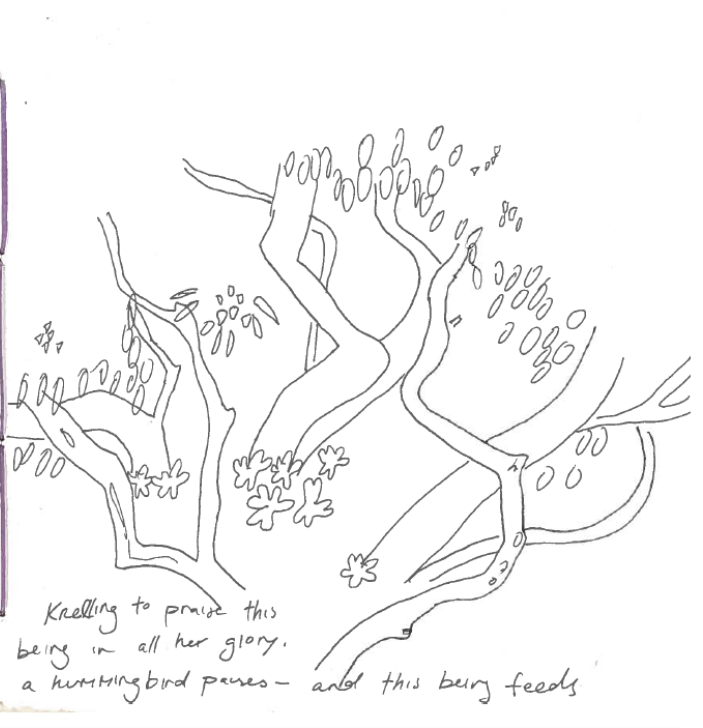 Knelling to praise this
being in all her glory.
a hummingbird pauses — and this being feeds